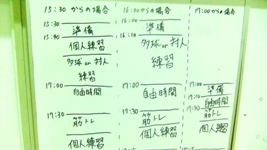 15:30 からの場合
15:30
準備
15:40
個人練習
多球 or 対人
練習
17:00
自由時間
17:30
筋トレ
個人練習
16:00からの場合
準備
多球 or 対人
練習
17:00
自由時間
17:30
筋トレ
個人練習
17:00からの場合
17:00
準備
17:10
自由時間
17:30
筋トレ
個人練習